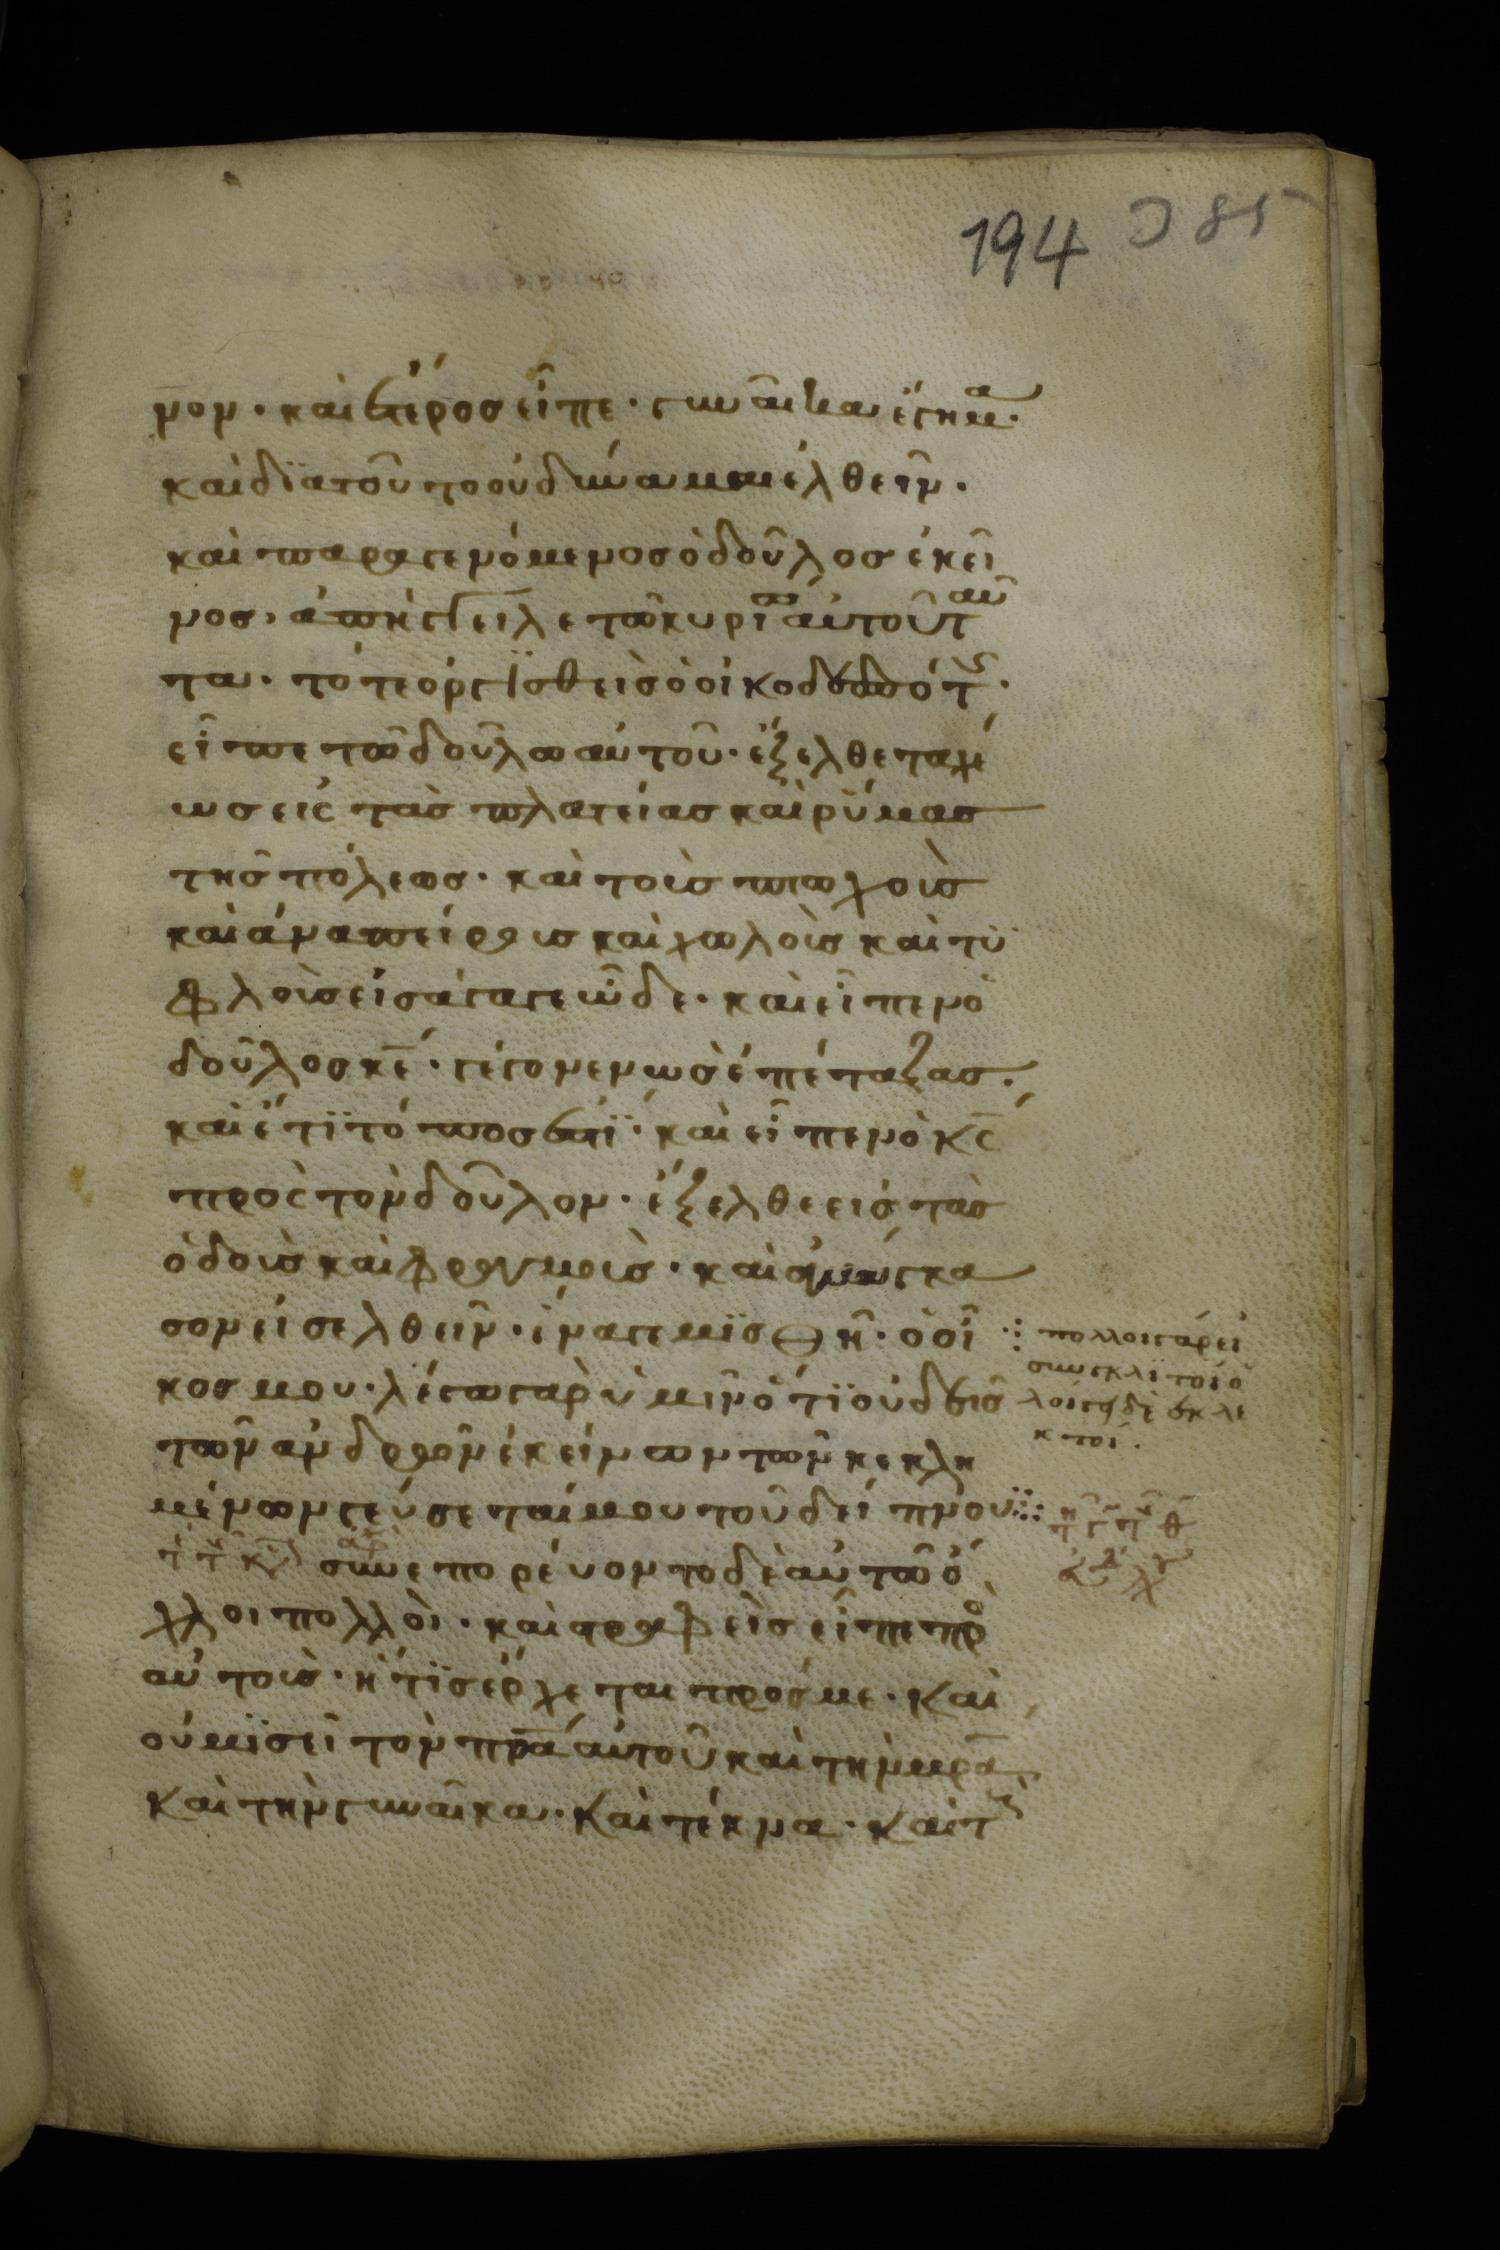 194 385
νον · καὶ ἕτερος εἶπε · γυναῖκα ἔγημα ·
καὶ δϊατοῦτο οὐ δύναμαι ἐλθεῖν ·
καὶ παραγενόμενος ὁ δοῦλος ἐκεῖ
νος · ἀπήγγειλε τῶ κυρίω αὐτοῦ ταῦ
τα · τότε ὀργϊσθεὶς ὁ οἰκοδεσπότης ·
εἶπε τῶ δούλω αὐτοῦ · ἔξελθε ταχέ
ως εἰς τὰς πλατείας καὶ ῥύμας
τῆς πόλεως · καὶ τοὺς πτωχοὺς
καὶ ἀναπείρους καὶ χωλοὺς καὶ τυ
φλοὺς εἰσάγαγε ὧδε · καὶ εἶπεν ὁ
δοῦλος κε · γέγονεν ὡς ἐπέταξας ·
καὶ ἔτϊ τόπος ἐστί · καὶ εἶπεν ὁ κς
πρὸς τὸν δοῦλον · ἔξελθε εἰς τὰς
ὁδοὺς καὶ φραγμοὺς · καὶ ἀνάγκα
σον εἰσελθεῖν · ἵνα γεμϊσθῆ · ὁ οἶ
κος μου · λέγω γὰρ ὑμῖν ὅτϊ οὐδεὶς
τῶν ἀνδρῶν ἐκείνων τῶν κεκλη
μένων γεύσεταί μου τοῦ δείπνου
πολλοι γάρ εἰ
σιν κλϊτοί ὀ
λοιγοι δὲ ἐκλε
κτοί ·
συνεπορεύοντο δὲ αὐτῶ ὄ
χλοι πολλοὶ · καὶ στραφεὶς εἶπε πρὸ
αὐτούς · ἥ τϊς ἔρχεται πρός με · καὶ
οὐ μϊσεῖ τὸν πρα αὐτοῦ καὶ τὴν μρα
καὶ τὴν γυναῖκα · καὶ τέκνα · καὶ τ